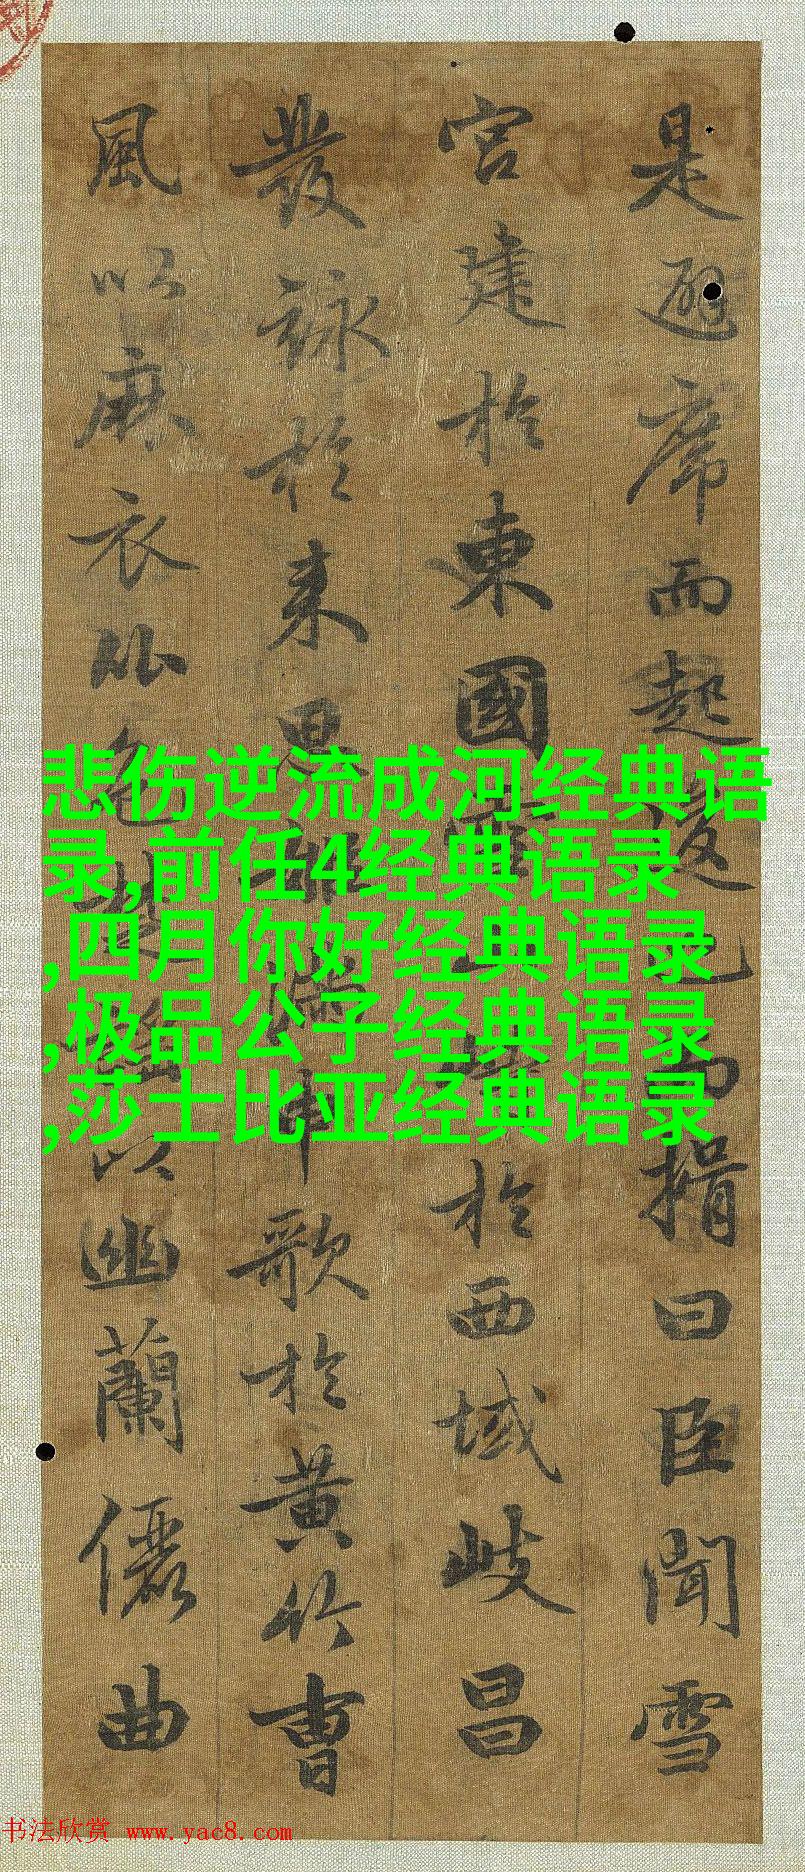 是避席而起逡巡而揖曰臣聞雪
宮建於東國雪山峙於西域岐昌
發詠於来思姬滿申歌於黄竹曹
風以麻衣比色楚謠以幽蘭儷曲
悲伤逆流成河经典语
录,前任4经典语录
,四月你好经典语录
,极品公子经典语录
,莎士比亚经典语录
书法欣赏 www.yac8.com